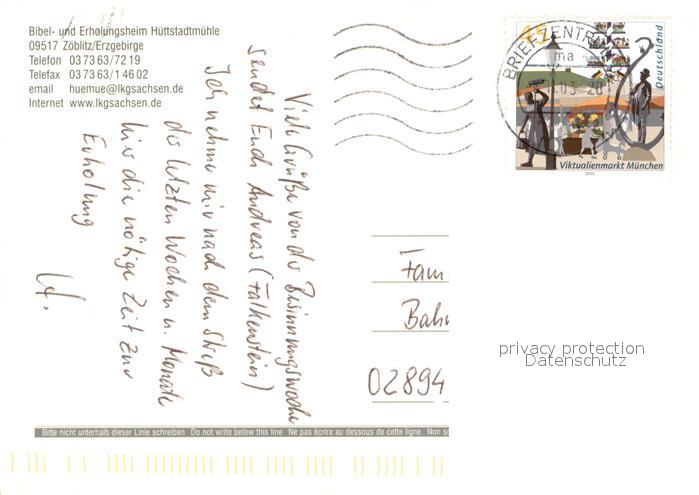 Bibel- und Erholungsheim Hüttstadtmühle
09517 Zöblitz/Erzgebirge
Telefon 03 73 63/72 19
Telefax 03 73 63/1 46 02
email huemue@lkgsachsen.de
Internet www.lkgsachsen.de
BRIEFZENTRUM
ma
.03-20
45
Deutschland
Viktualienmarkt München
2003
Viele Grüße von der Besinnungswoche
sendet Euch Andreas (Falkenstein)
Ich nehme mir nach dem Streß
der letzten Wochen u. Monate
hier die nötige Zeit zur
Erholung
Fam.
Bah
02894
privacy protection
Datenschutz
Bitte nicht unterhalb dieser Linie schreiben Do not write below this line Ne pas écrire au dessous de cette ligne Non sc